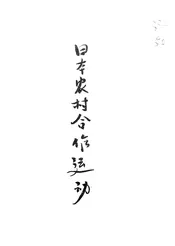 日本农村合作运动